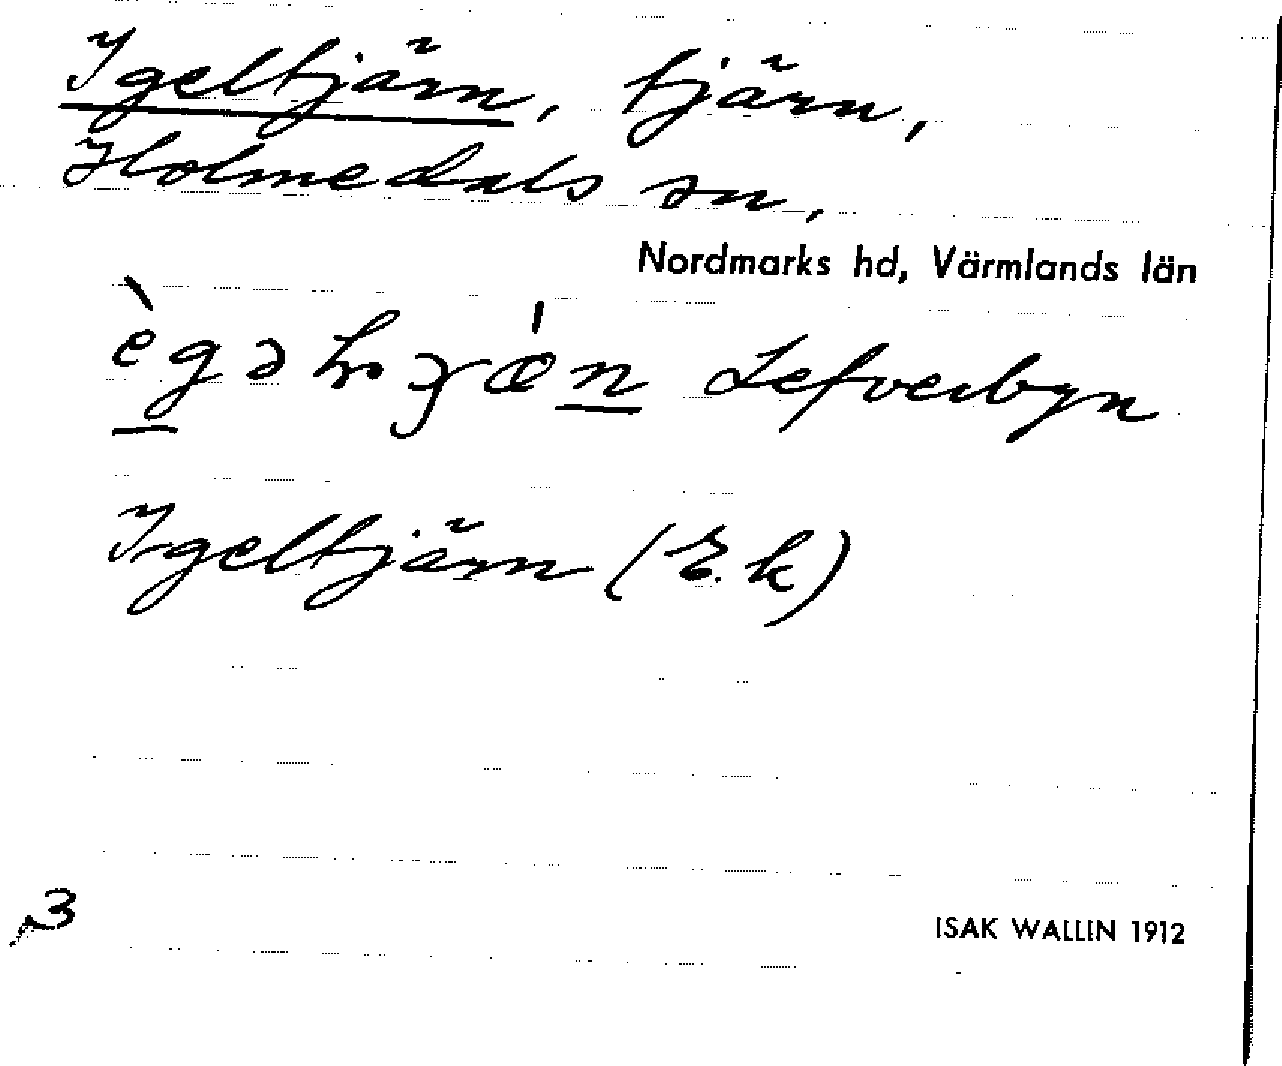 Igeltjärn, tjärn,
Holmedals sn,
Nordmarks hd, Värmlands län
Lefverbyn
Igeltjärn (E.k)
3
ISAK WALLIN 1912